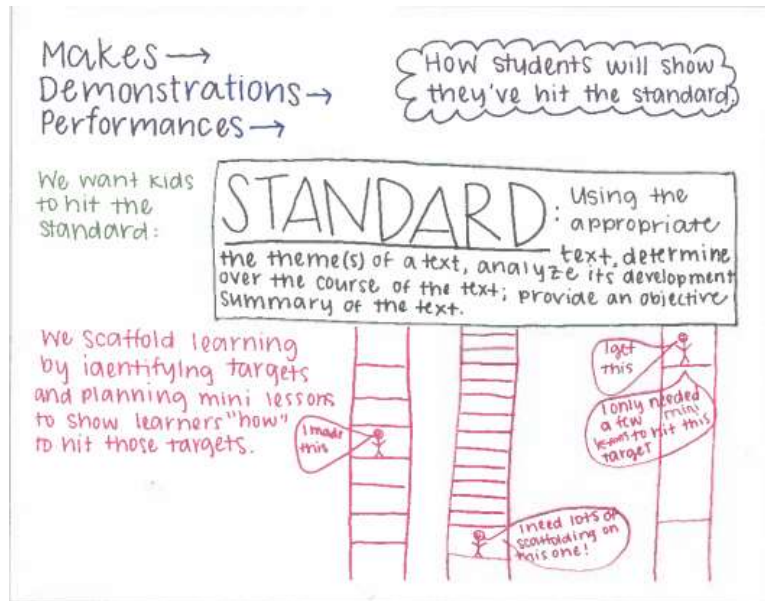 Makes →
Demonstrations →
Performances →
How students will show
they've hit the standard.
We want kids
to hit the
standard:
STANDARD: Using the
appropriate
text, determine
the theme(s) of a text, analyze its development
over the course of the text; provide an objective
summary of the text.
We scaffold learning
by identifying targets
and planning mini lessons
to show learners "how"
to hit those targets.
I made
this
I need lots of
scaffolding on
this one!
I get
this
I only needed
a few mini
to hit this
target